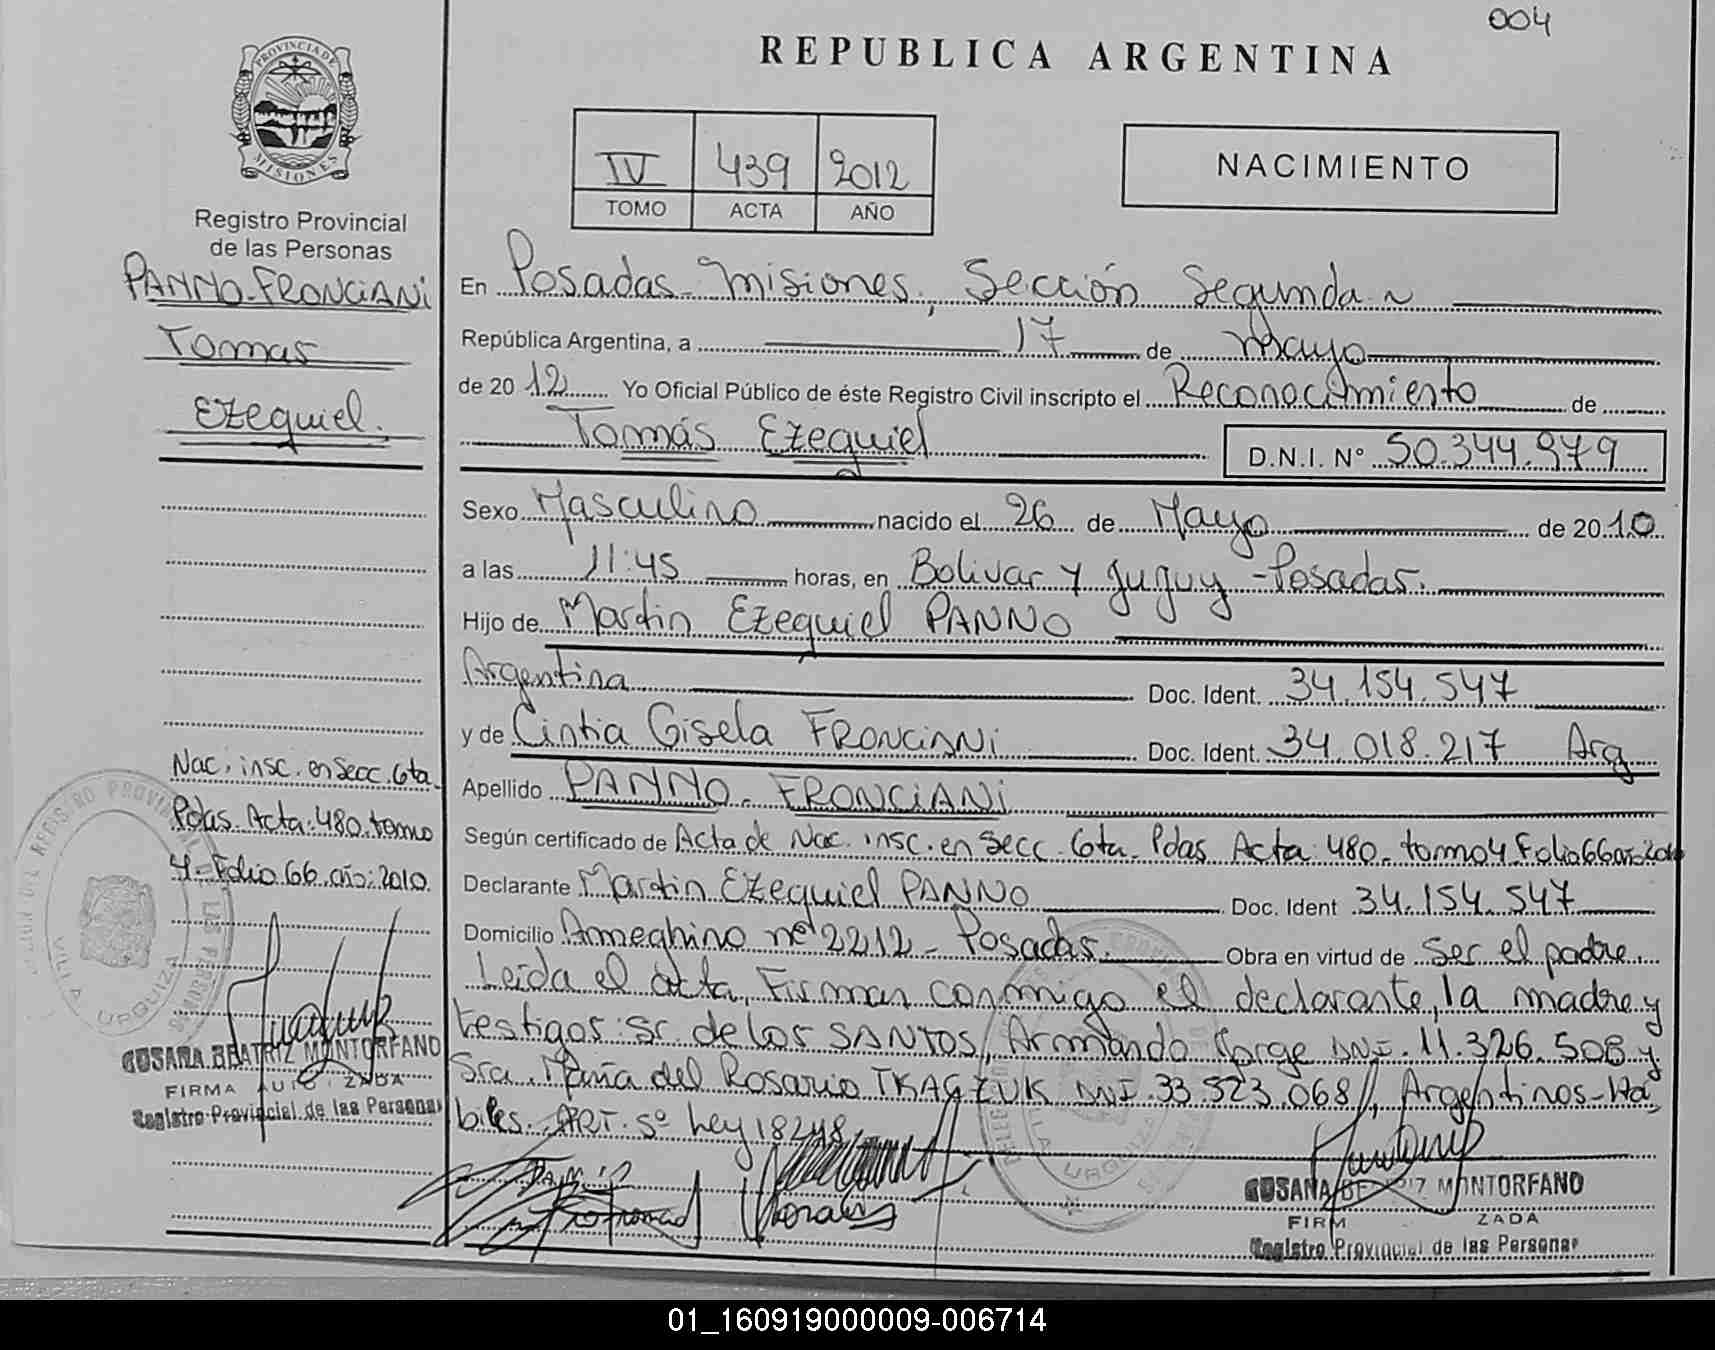 004
REPUBLICA ARGENTINA
PROVINCIA DE MISIONES
IV 439 2012
TOMO ACTA AÑO
NACIMIENTO
Registro Provincial
de las Personas
PANNO-FRONCIANI
Tomas
Ezequiel.
En Posadas-Misiones, Sección Segunda
República Argentina, a 17 de Mayo
de 2012 Yo Oficial Público de éste Registro Civil inscripto el Reconocimiento de
Tomás Ezequiel D.N.I. Nº 50.344.979
Sexo Masculino nacido el 26 de Mayo de 2010
a las 11:45 horas, en Bolivar y Jujuy - Posadas.
Hijo de Martin Ezequiel PANNO
Argentina Doc. Ident. 34.154.547
y de Cintia Gisela FRONCIANI Doc. Ident. 34.018.217 Arg
Apellido PANNO - FRONCIANI
Según certificado de Acta de Nac. insc. en Secc. 6ta. Pdas Acta: 480. tomo 4 Folio 66 año: 2010
Declarante Martin Ezequiel PANNO Doc. Ident 34.154.547
Domicilio Ameghino nº 2212 - Posadas. Obra en virtud de ser el padre.
Leída el acta, Firman conmigo el declarante, la madre y
testigos: Sr. de los SANTOS, Armando Jorge DNI. 11.326.508 y
Sra. María del Rosario TKACZUK DNI. 33.523.068//, Argentinos-Há
biles. ART. 5º Ley 18248
Nac. insc. en Secc. 6ta
Pdas. Acta: 480. tomo
4- Folio 66 año: 2010.
VILLA URQUIZA
ROSANA BEATRIZ MONTORFANO
FIRMA AUTORIZADA
Registro Provincial de las Personas
VILLA URQUIZA
MONTORFANO
FIRM ZADA
Registro Provincial de las Personas
01_160919000009-006714